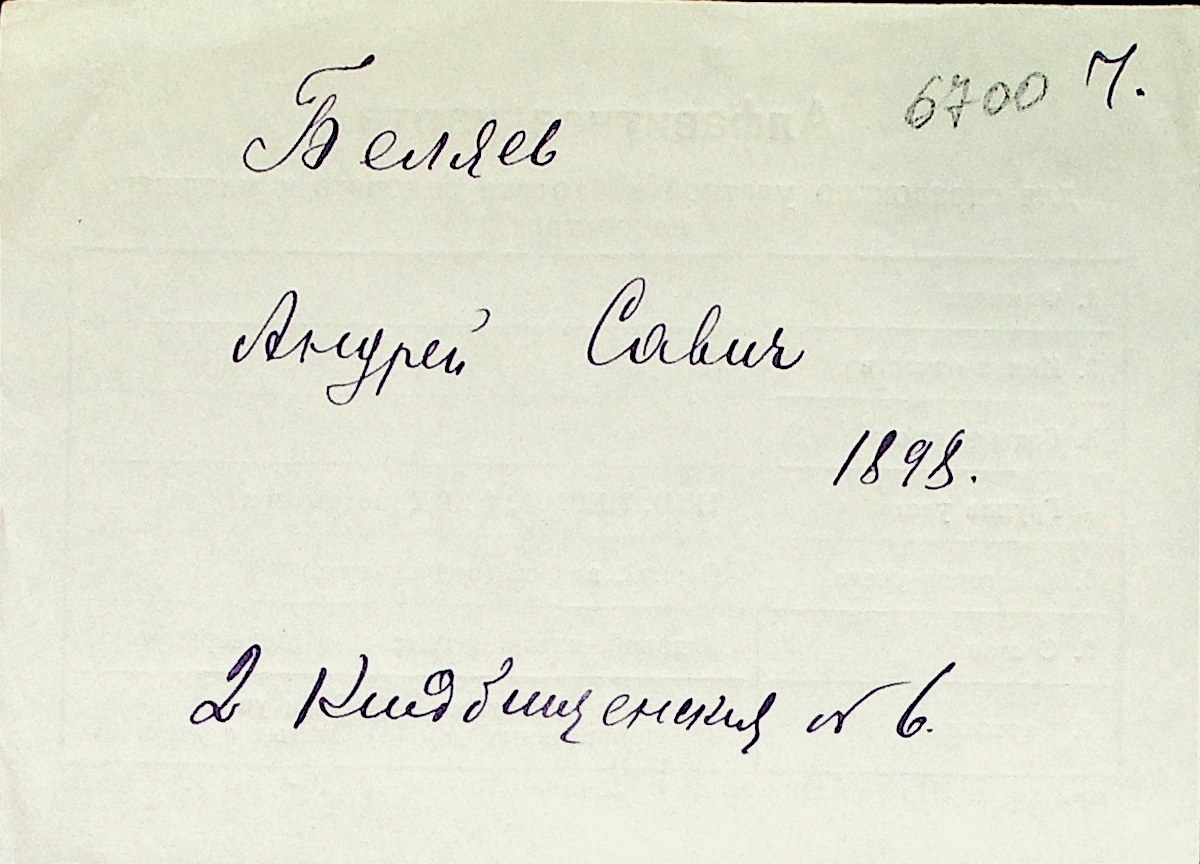 6700 7.
Беляев
Андрей Савич
1898.
2 Кладбищенская № 6.